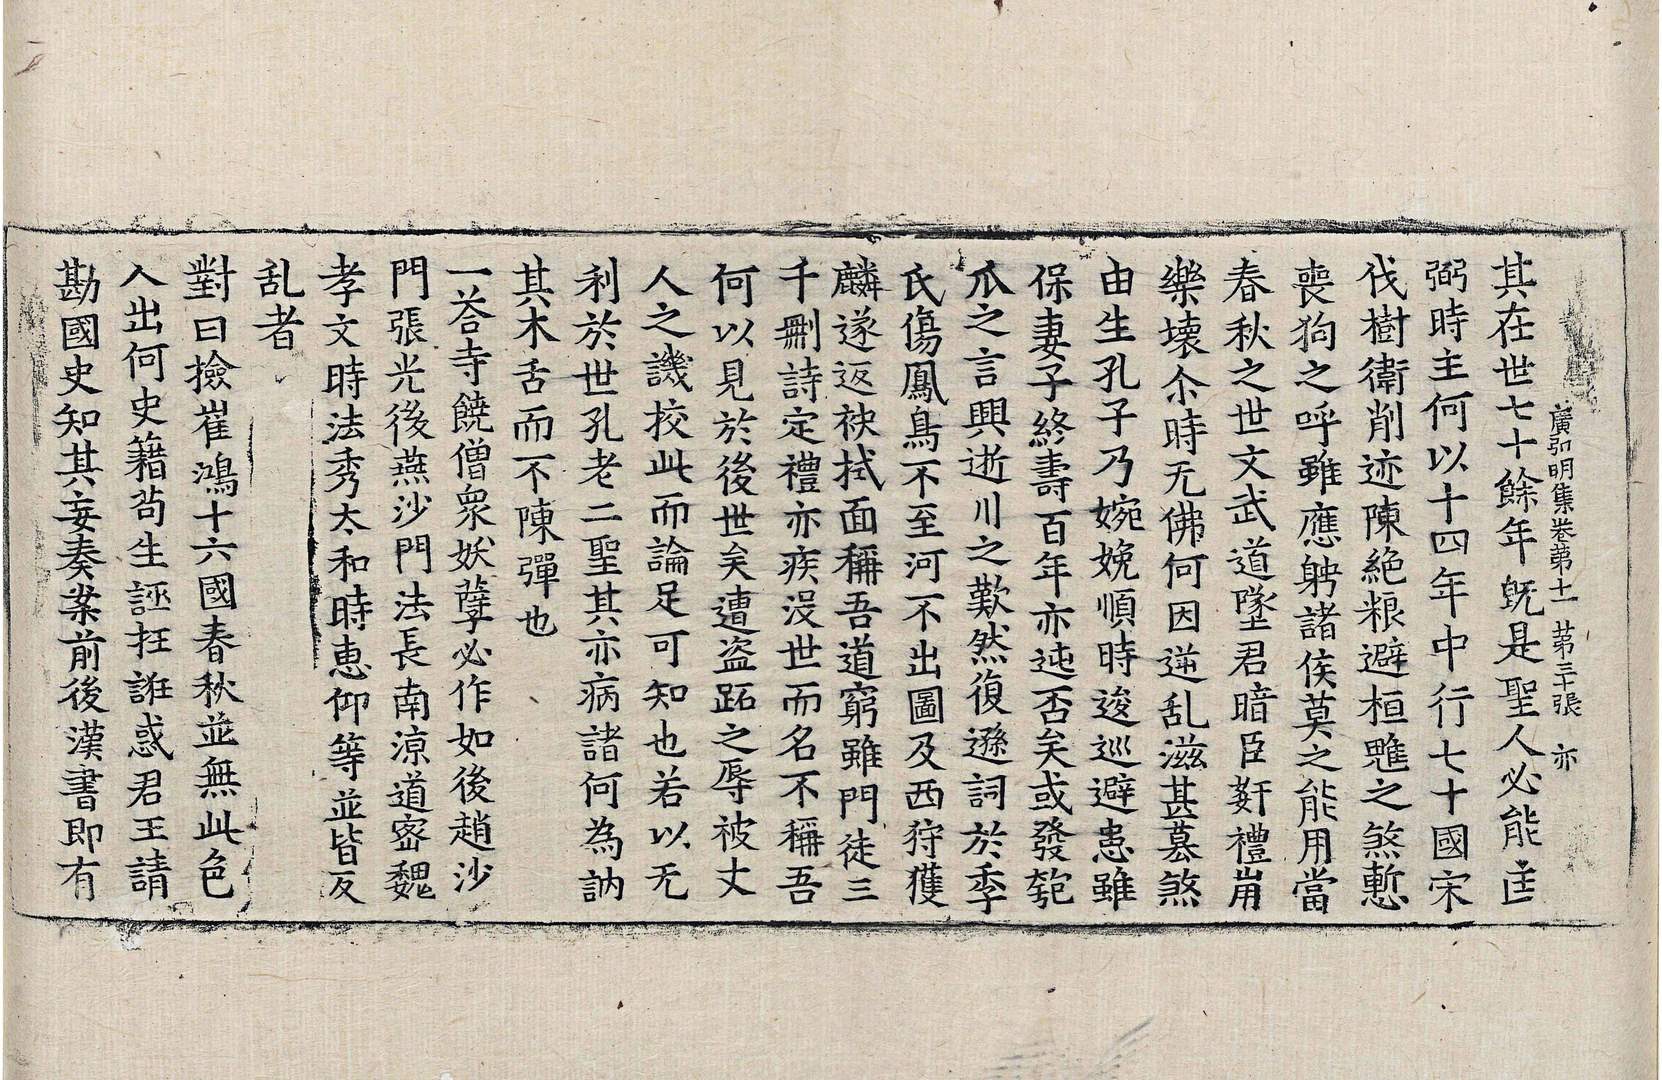 廣弘明集卷第十一 第三十張 亦
其在世七十餘年旣是聖人必能匡
弼時主何以十四年中行七十國宋
伐樹衛削迹陳絶粮避桓魋之煞慙
喪狗之呼雖應聘諸侯莫之能用當
春秋之世文武道墜君暗臣姧禮崩
樂壞尒時无佛何因逆乱滋甚篡煞
由生孔子乃婉娩順時逡巡避患雖
保妻子終壽百年亦迍否矣或發匏
瓜之言興逝川之歎然復遜詞於季
氏傷鳳鳥不至河不出圖及西狩獲
麟遂返袂拭面稱吾道窮雖門徒三
千刪詩定禮亦疾沒世而名不稱吾
何以見於後世矣遭盗跖之辱被丈
人之譏挍此而論足可知也若以无
利於世孔老二聖其亦病諸何為訥
其木舌而不陳彈也
一荅寺饒僧衆妖孽必作如後趙沙
門張光後燕沙門法長南涼道密魏
孝文時法秀太和時恵仰等並皆反
乱者
對曰撿崔鴻十六國春秋並無此色
人出何史籍苟生誣抂誑惑君王請
勘國史知其妄奏案前後漢書即有